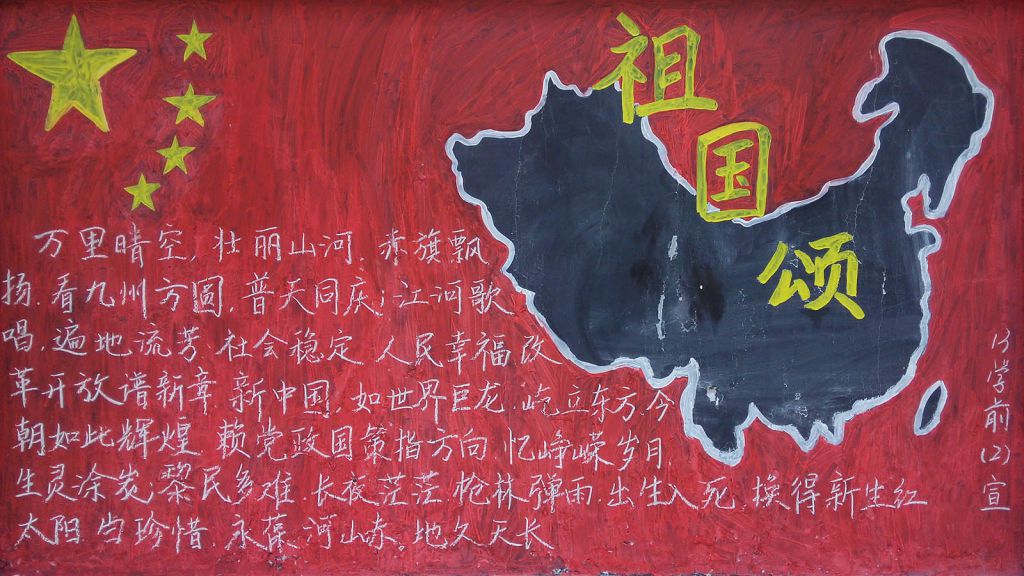 祖国颂
万里晴空,壮丽山河.赤旗飘
扬.看九州方圆,普天同庆;江河歌
唱,遍地流芳.社会稳定.人民幸福.改
革开放谱新章.新中国,如世界巨龙.屹立东方.今
朝如此辉煌.赖党政国策指方向.忆峥嵘岁月,
生灵涂炭.黎民多难.长夜茫茫.枪林弹雨.出生入死.换得新生红
太阳.当珍惜.永葆河山赤。地久天长
13学前(2)宣